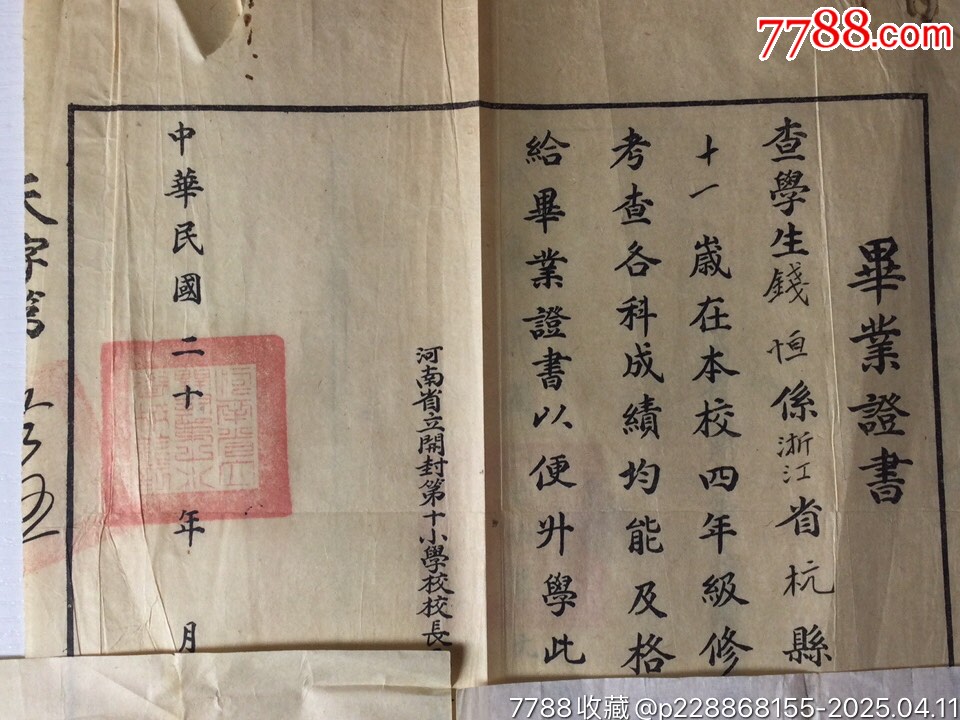 7788.com
畢業證書
查學生錢恒係浙江省杭縣
十一歲在本校四年級修
考查各科成績均能及格
給畢業證書以便升學此
河南省立開封第十小學校校長
中華民國二十年 月
天字第
7788收藏@p228868155-2025.04.11